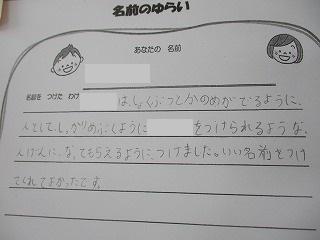 名前のゆらい
あなたの 名前
名前を つけた わけ
は、しょくぶつとかのめがでるように、
人として、しっかりめぶくように をつけられるような、
人げんに、なってもらえるように、つけました。いい名前をつけ
てくれてよかったです。